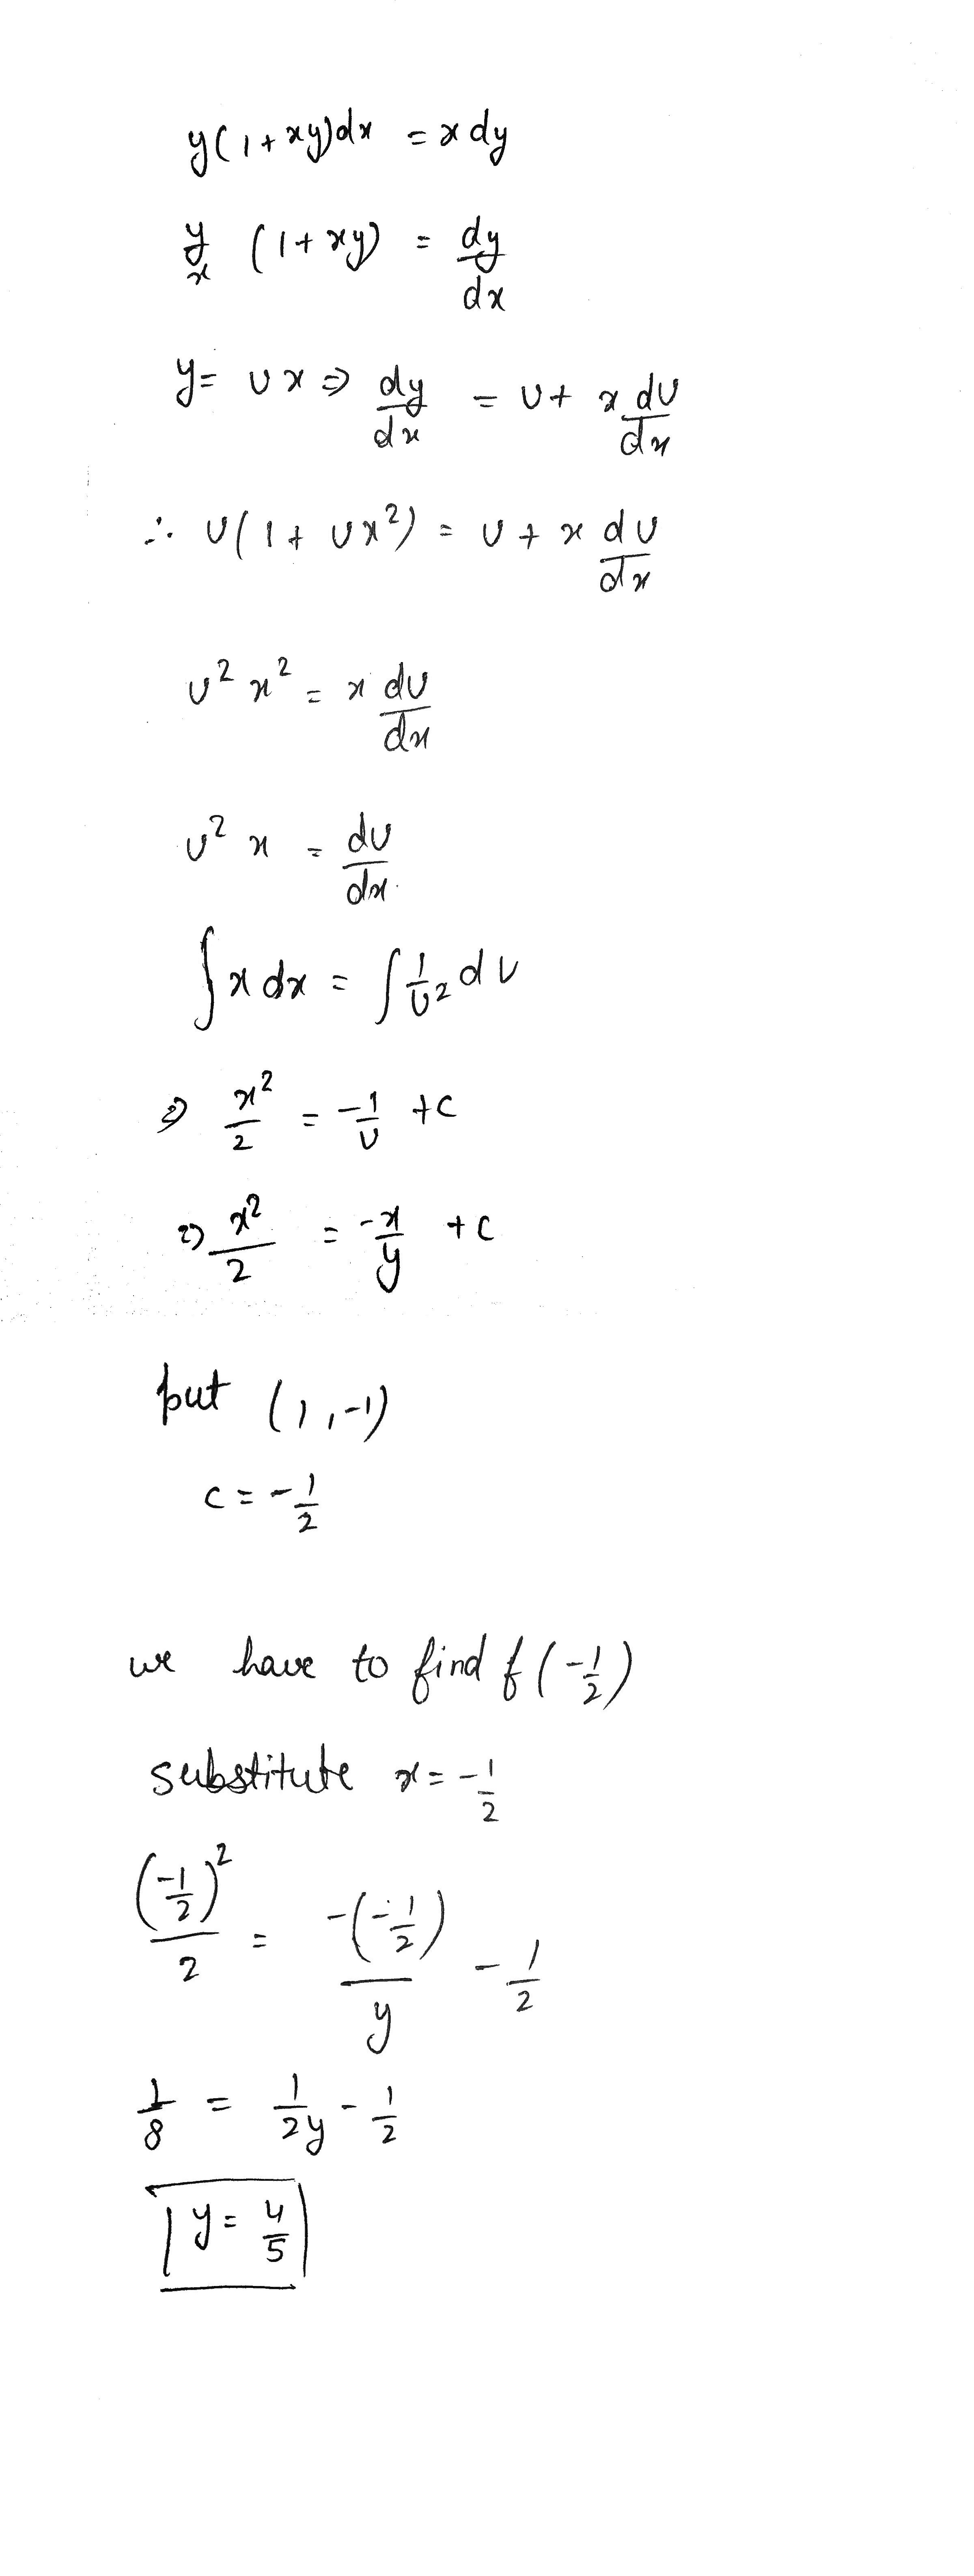 y(1+xy)dx = x dy
y/x (1+xy) = dy/dx
y = vx ⇒ dy/dx = v + x dv/dx
∴ v(1+vx²) = v + x dv/dx
v²x² = x dv/dx
v²x = dv/dx
∫x dx = ∫1/v² dv
⇒ x²/2 = -1/v + c
⇒ x²/2 = -x/y + c
put (1,-1)
c = -1/2
we have to find f(-1/2)
substitute x = -1/2
(-1/2)²/2 = -(-1/2)/y - 1/2
1/8 = 1/2y - 1/2
y = 4/5